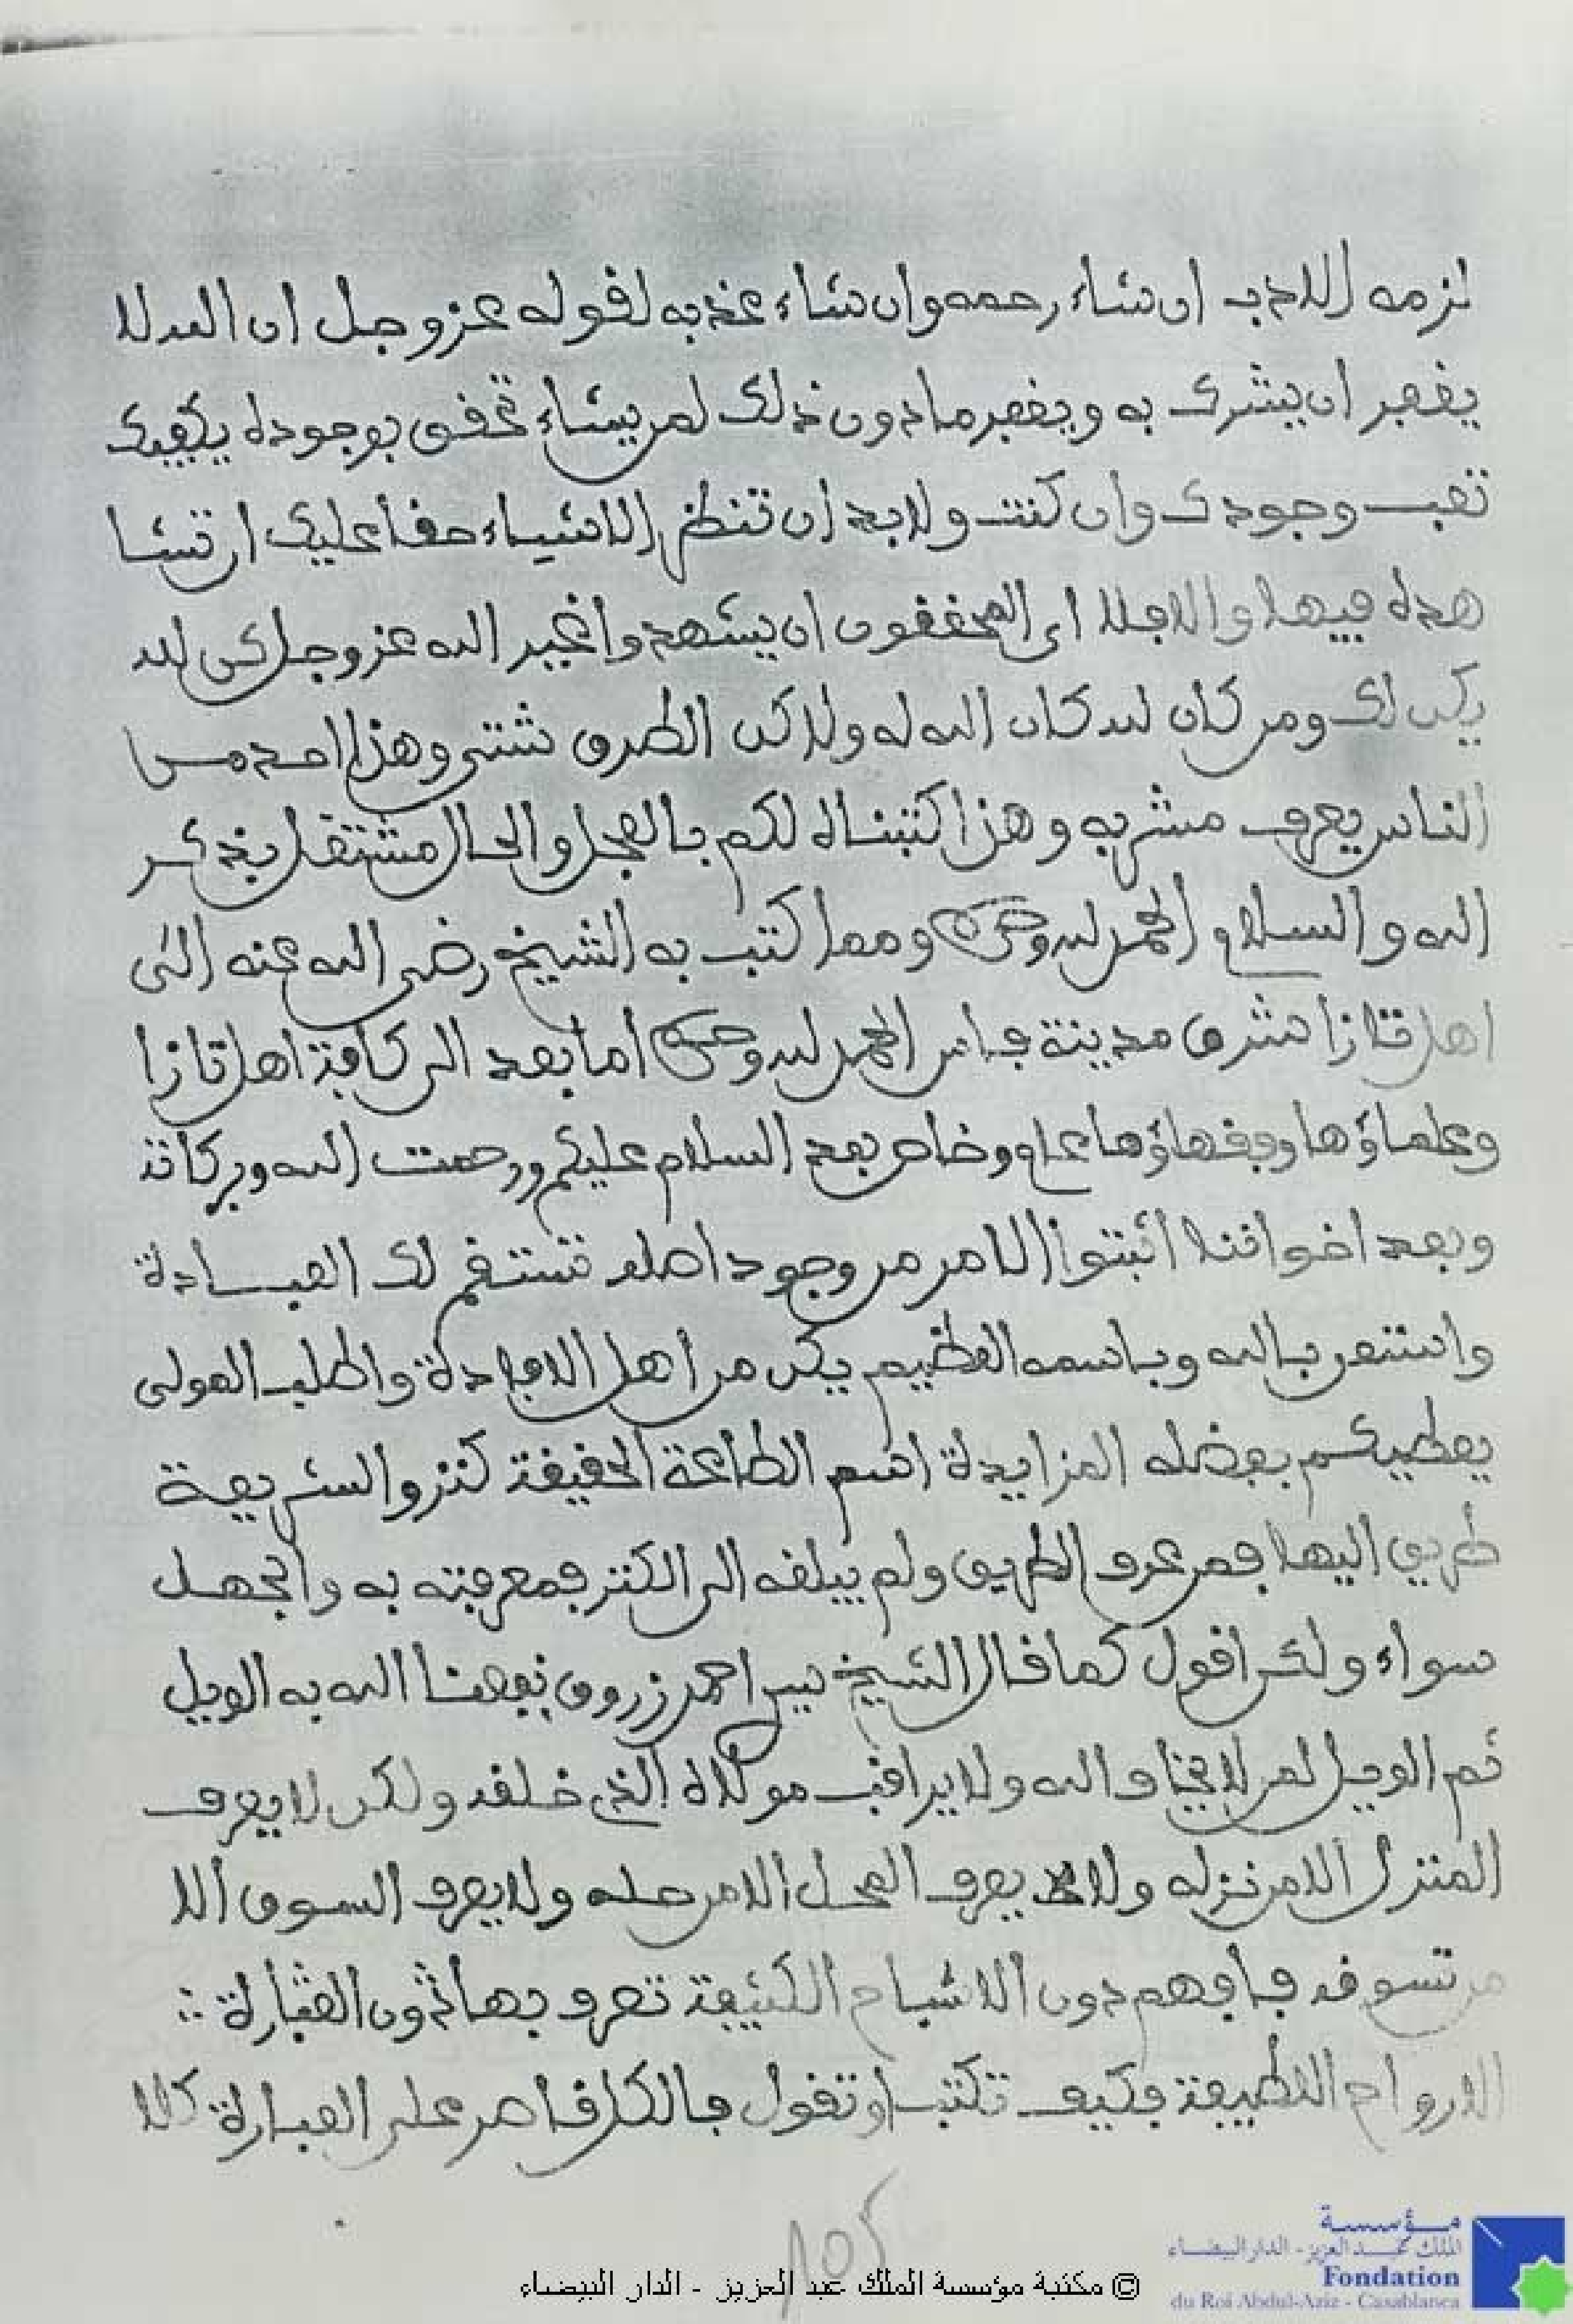 لزمه الادب ان شاء رحمه وان شاء عذبه لقوله عز وجل ان الله لا
يغفر ان يشرك به ويغفر ما دون ذلك لمن يشاء تحقق بوجوده
تغب وجودك وان كنت ولا بد ان تنظر الاشياء حقا عليك ان تشا
هده فيها والا فلا المحققون ان يشهدوا غير الله عز وجل كن لله
يكن لك ومن كان لله كان الله له ولاكن الطرق شتى وهذا
الناس يعرف مشربه وهذا كتبناه لكم بالعجل والحال مشتغل بذكر
الله والسلام الحمد لله وحده ومما كتب به الشيخ رضي الله عنه الى
اهل تازا شرق مدينة فاس الحمد لله وحده اما بعد الى كافة اهل تازا
وعلماؤها وفقهاؤها عام وخاص بعد السلام عليكم ورحمت الله وبركاته
وبعد اخواننا اثبتوا الامر من وجود اصله تستقم لك العبادة
واستعن بالله وباسمه العظيم يكن من اهل الافادة واطلب المولى
يعطيكم بفضله المزايدة اسم الطاعة الحقيقة كنز والشريعة
طريق اليها فمن عرف الطريق ولم يبلغه الى الكنز فمعرفته به والجهل
سواء ولكن اقول كما قال الشيخ سيد احمد زروق نفعنا الله به الويل
ثم الويل لمن لا يخاف الله ولا يراقب مولاه الذي خلقه ولكن لا يعرف
المنزل الا من نزله ولا يعرف المحل الا من حله ولا يعرف السوق الا
من تسوقه فافهم دون الاشباح الكثيفة تعرف بها العبارة
الارواح اللطيفة فكيف تكتب او تقول فالكل قاصر على العبارة كلا
105
© مكتبة مؤسسة الملك عبد العزيز - الدار البيضاء
مؤسسة
الملك عبد العزيز - الدار البيضاء
Fondation
du Roi Abdul-Aziz - Casablanca